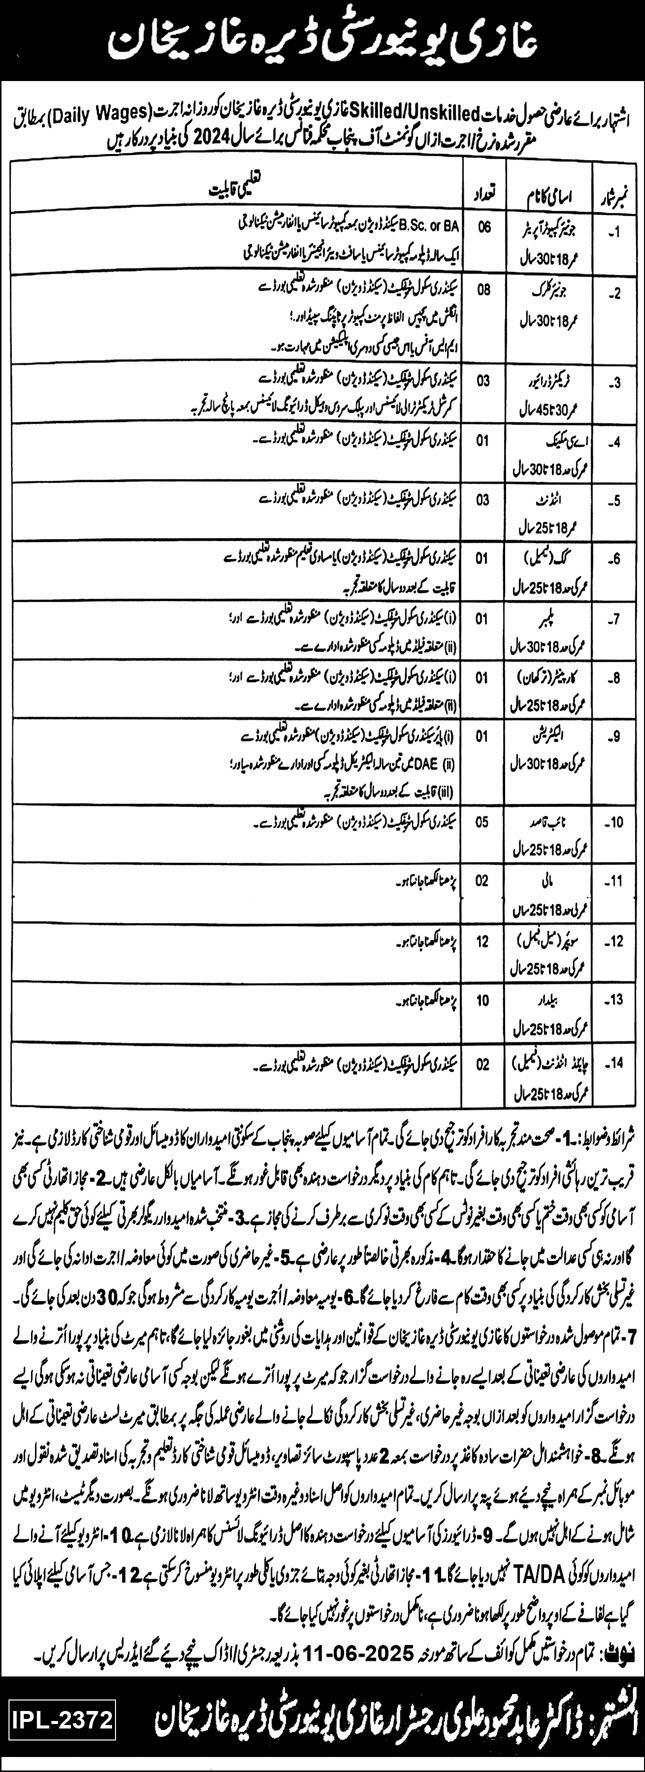 غازی یونیورسٹی ڈیرہ غازیخان
اشتہار برائے عارضی حصول خدمات Skilled/Unskilled غازی یونیورسٹی ڈیرہ غازیخان کو روزانہ اجرت (Daily Wages) بمطابق
مقرر شدہ نرخ/ اجرت ازاں گورنمنٹ آف پنجاب محکمہ فنانس برائے سال 2024 کی بنیاد پر درکار ہیں
نمبر شمار اسامی کا نام تعداد تعلیمی قابلیت
1۔ جونیئر کمپیوٹر آپریٹر 06 B.Sc. or BA سیکنڈ ڈویژن بمعہ کمپیوٹر سائنس یا انفارمیشن ٹیکنالوجی
عمر 18 تا 30 سال ایک سالہ ڈپلومہ کمپیوٹر سائنس یا سافٹ ویئر انجینئر یا انفارمیشن ٹیکنالوجی
2۔ جونیئر کلرک 08 سیکنڈری سکول سرٹیفکیٹ (سیکنڈ ڈویژن) منظور شدہ تعلیمی بورڈ سے
عمر 18 تا 30 سال انگلش میں پچیس الفاظ پر منٹ کمپیوٹر پر ٹائپنگ سپیڈ اور؛
ایم ایس آفس یا اس جیسی کسی دوسری اپلیکیشن میں مہارت ہو۔
3۔ ٹریکٹر ڈرائیور 03 سیکنڈری سکول سرٹیفکیٹ (سیکنڈ ڈویژن) منظور شدہ تعلیمی بورڈ سے
عمر 30 تا 45 سال کمرشل ٹریکٹر ٹرالی لائیسنس اور پبلک سروس وہیکل ڈرائیونگ لائیسنس بمعہ پانچ سالہ تجربہ
4۔ اے سی مکینک 01 سیکنڈری سکول سرٹیفکیٹ (سیکنڈ ڈویژن) منظور شدہ تعلیمی بورڈ سے۔
عمر کی حد 18 تا 30 سال
5۔ اٹنڈنٹ 03 سیکنڈری سکول سرٹیفکیٹ (سیکنڈ ڈویژن) منظور شدہ تعلیمی بورڈ سے
عمر 18 تا 25 سال
6۔ کک (فیمیل) 01 سیکنڈری سکول سرٹیفکیٹ (سیکنڈ ڈویژن) یا مساوی تعلیم منظور شدہ تعلیمی بورڈ سے
عمر کی حد 18 تا 25 سال قابلیت کے بعد دو سال کا متعلقہ تجربہ
7۔ پلمبر 01 (i) سیکنڈری سکول سرٹیفکیٹ (سیکنڈ ڈویژن) منظور شدہ تعلیمی بورڈ سے اور؛
عمر کی حد 18 تا 30 سال (ii) متعلقہ فیلڈ میں ڈپلومہ کسی منظور شدہ ادارے سے۔
8۔ کارپینٹر (ترکھان) 01 (i) سیکنڈری سکول سرٹیفکیٹ (سیکنڈ ڈویژن) منظور شدہ تعلیمی بورڈ سے اور؛
عمر کی حد 18 تا 25 سال (ii) متعلقہ فیلڈ میں ڈپلومہ کسی منظور شدہ ادارے سے۔
9۔ الیکٹریشن 01 (i) ہائر سیکنڈری سکول سرٹیفکیٹ (سیکنڈ ڈویژن) منظور شدہ تعلیمی بورڈ سے
عمر کی حد 18 تا 30 سال (ii) DAE میں تین سالہ الیکٹریکل ڈپلومہ کسی اور ادارے منظور شدہ سے اور؛
(iii) قابلیت کے بعد دو سال کا متعلقہ تجربہ
10۔ نائب قاصد 05 سیکنڈری سکول سرٹیفکیٹ (سیکنڈ ڈویژن) منظور شدہ تعلیمی بورڈ سے۔
عمر کی حد 18 تا 25 سال
11۔ مالی 02 پڑھنا لکھنا جانتا ہو۔
عمر کی حد 18 تا 25 سال
12۔ سویپر (میل، فیمیل) 12 پڑھنا لکھنا جانتا ہو۔
عمر کی حد 18 تا 25 سال
13۔ بیلدار 10 پڑھنا لکھنا جانتا ہو۔
عمر کی حد 18 تا 25 سال
14۔ چائلڈ اٹنڈنٹ (فیمیل) 02 سیکنڈری سکول سرٹیفکیٹ (سیکنڈ ڈویژن) منظور شدہ تعلیمی بورڈ سے۔
عمر کی حد 18 تا 25 سال
شرائط و ضوابط: 1- صحت مند تجربہ کار افراد کو ترجیح دی جائے گی۔ تمام آسامیوں کیلئے صوبہ پنجاب کے سکونتی امیدواران کا ڈومیسائل اور قومی شناختی کارڈ لازمی ہے۔ نیز
قریب ترین رہائشی افراد کو ترجیح دی جائے گی۔ تاہم کام کی بنیاد پر دیگر درخواست دہندہ بھی قابل غور ہونگے۔ آسامیاں بالکل عارضی ہیں۔ 2- مجاز اتھارٹی کسی بھی
آسامی کو کسی بھی وقت ختم یا کسی بھی وقت بغیر نوٹس کے کسی بھی وقت نوکری سے برطرف کرنے کی مجاز ہے۔ 3- منتخب شدہ امیدوار ریگولر بھرتی کیلئے کوئی حق کلیم نہیں کرے
گا اور نہ ہی کسی عدالت میں جانے کا حقدار ہوگا۔ 4- مذکورہ بھرتی خالصتاً طور پر عارضی ہے۔ 5- غیر حاضری کی صورت میں کوئی معاوضہ/ اجرت ادا نہ کی جائے گی اور
غیر تسلی بخش کارکردگی کی بنیاد پر کسی بھی وقت کام سے فارغ کر دیا جائے گا۔ 6- یومیہ معاوضہ/ اُجرت یومیہ کارکردگی سے مشروط ہوگی جو کہ 30 دن بعد کی جائے گی۔
7- تمام موصول شدہ درخواستوں کا غازی یونیورسٹی ڈیرہ غازیخان کے قوانین اور ہدایات کی روشنی میں بغور جائزہ لیا جائے گا، تاہم میرٹ کی بنیاد پر پورا اُترنے والے
امیدواروں کی عارضی تعیناتی کے بعد ایسے رہ جانے والے درخواست گزار جو کہ میرٹ پر پورا اُترے ہونگے لیکن بوجہ کسی آسامی عارضی تعیناتی نہ ہو سکی ہوگی ایسے
درخواست گزار امیدواروں کو بعد ازاں بوجہ غیر حاضری، غیر تسلی بخش کارکردگی نکالے جانے والے عارضی عملہ کی جگہ پر بمطابق میرٹ لسٹ عارضی تعیناتی کے اہل
ہونگے۔ 8- خواہشمند اہل حضرات سادہ کاغذ پر درخواست بمعہ 2 عدد پاسپورٹ سائز تصاویر، ڈومیسائل قومی شناختی کارڈ تعلیم و تجربہ کی اسناد تصدیق شدہ نقول اور
موبائل نمبر کے ہمراہ نیچے دیئے ہوئے پتہ پر ارسال کریں۔ تمام امیدواروں کو اصل اسناد وغیرہ وقت انٹرویو ساتھ لانا ضروری ہونگے۔ بصورت دیگر ٹیسٹ، انٹرویو میں
شامل ہونے کے اہل نہیں ہوں گے۔ 9- ڈرائیورز کی آسامیوں کیلئے درخواست دہندہ کا اصل ڈرائیونگ لائسنس کا ہمراہ لانا لازمی ہے۔ 10- انٹرویو کیلئے آنے والے
امیدواروں کو کوئی TA/DA نہیں دیا جائے گا۔ 11- مجاز اتھارٹی بغیر کوئی وجہ بتائے جزوی یا کلی طور پر انٹرویو منسوخ کر سکتی ہے۔ 12- جس آسامی کیلئے اپلائی کیا
گیا ہے لفافے کے اوپر واضح طور پر لکھا ہونا ضروری ہے، نامکمل درخواستوں پر غور نہیں کیا جائے گا۔
نوٹ: تمام درخواستیں مکمل کوائف کے ساتھ مورخہ 11-06-2025 بذریعہ رجسٹری/ ڈاک نیچے دیئے گئے ایڈریس پر ارسال کریں۔
المشتہر: ڈاکٹر عابد محمود علوی رجسٹرار غازی یونیورسٹی ڈیرہ غازیخان
IPL-2372